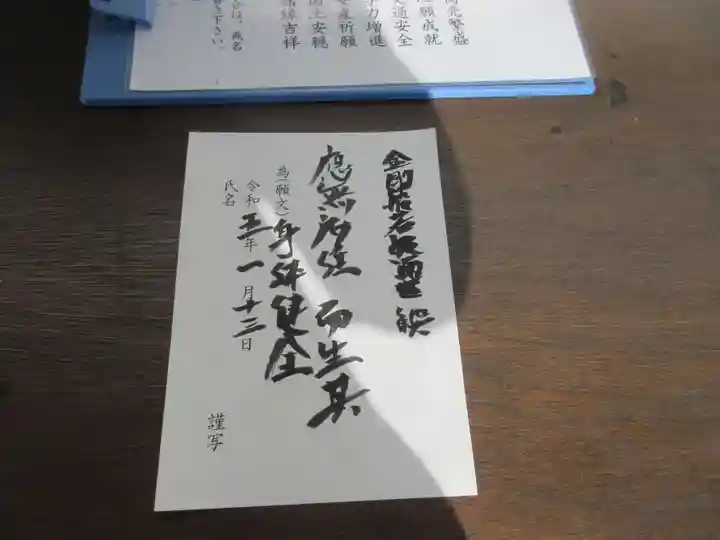 商売繁盛
心願成就
交通安全
学力増進
安産祈願
国土安穏
諸縁吉祥
合は、氏名
下さい。
金剛般若波羅蜜
應無所住 而生其
為(願文)身体健全
令和五年一月十二日
氏名
謹写